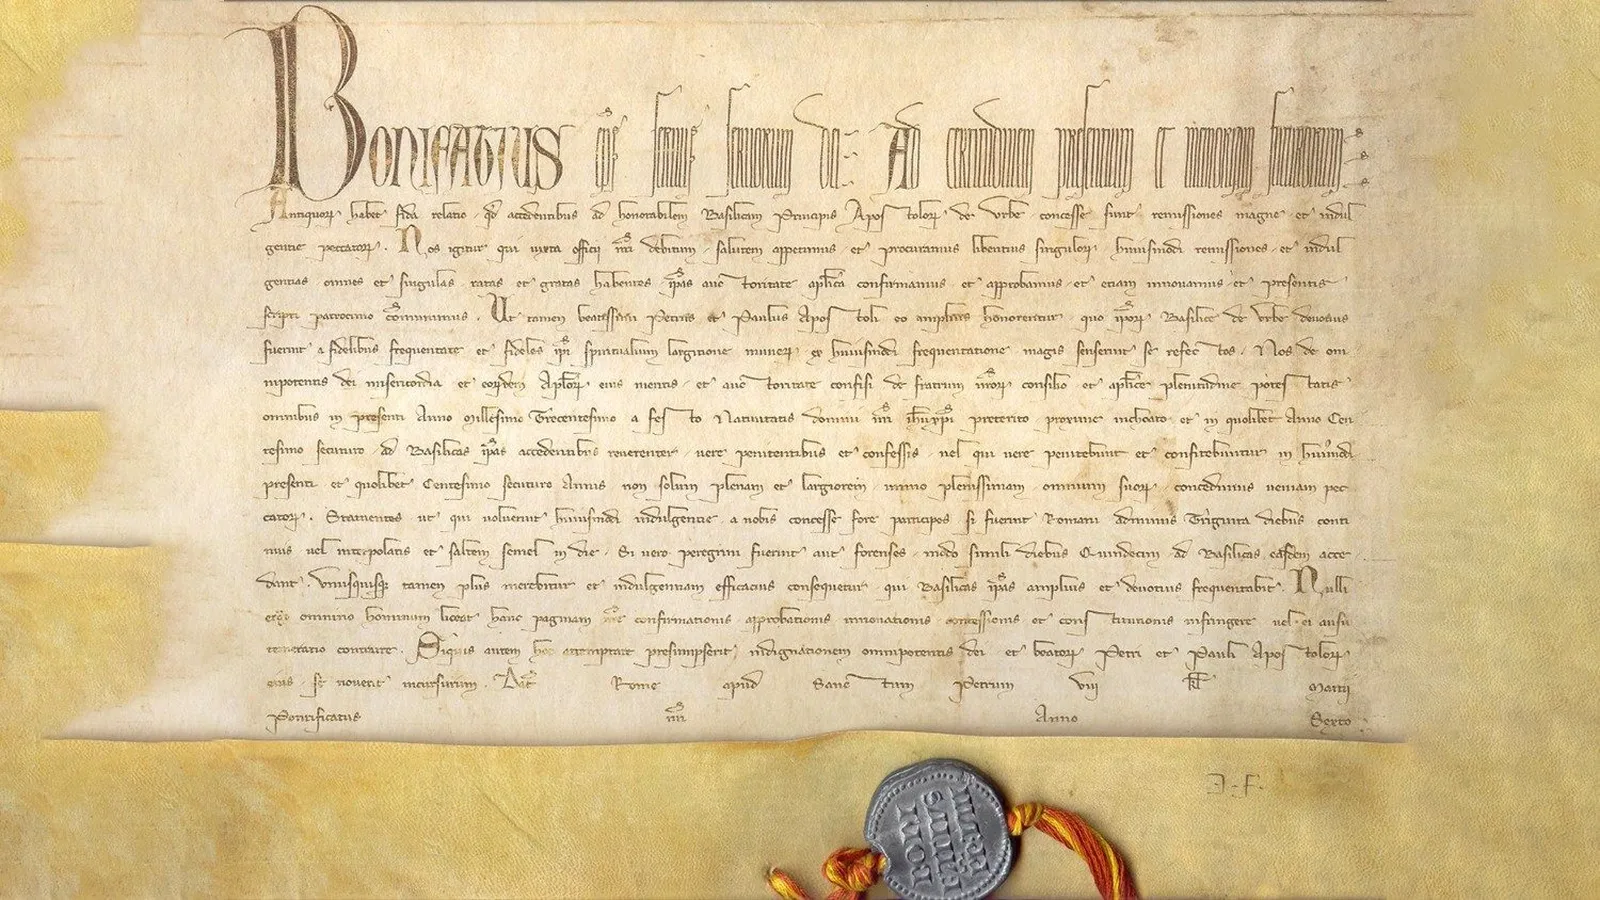 Bonifatius eps seruus seruorum dei. Ad certitudinem presentium et memoriam futurorum.
Antiquorꝝ habet fida relatio qd accedentibus ad honorabilem Basilicam Principis Apostolorꝝ de Urbe concesse sunt remissiones magne et indul
gentie peccatorꝝ. Nos igitur qui iuxta officii nri debitum salutem appetimus et procuramus libentius singulorꝝ huiusmodi remissiones et indul
gentias omnes et singulas ratas et gratas habentes ipas auctoritate aplica confirmamus et approbamus et etiam innouamus et presentis
scripti patrocinio communimus. Ut tamen beatissimi Petrus et Paulus Apostoli eo amplius honorentur quo ipoꝝ Basilice de Urbe deuotius
fuerint a fidelibus frequentate et fideles ipi spiritualium largitione munerꝝ ex huiusmodi frequentatione magis senserint se refectos. Nos de om
nipotentis dei misericordia et eorꝝdem Aplorꝝ eius meritis et auctoritate confisi de fratrum nrorꝝ consilio et aplice plenitudine potestatis
omnibus in presenti Anno Millesimo Trecentesimo a festo Natiuitatis domini nri ihu xpi preterito proxime inchoato et in quolibet Anno Cen
tesimo secuturo ad Basilicas ipas accedentibus reuerenter uere penitentibus et confessis uel qui uere penitebunt et confitebuntur in huiusmodi
presenti et quolibet Centesimo secuturo Annis non solum plenam et largiorem immo plenissimam omnium suorꝝ concedimus ueniam pec
catorꝝ. Statuentes ut qui uoluerint huiusmodi indulgentie a nobis concesse fore participes si fuerint Romani adminus Triginta diebus conti
nuis uel interpolatis et saltem semel in die. Si uero peregrini fuerint aut forenses modo simili diebus Quindecim ad Basilicas easdem acce
dant. Unusquisq tamen plus merebitur et indulgentiam efficacius consequetur qui Basilicas ipas amplius et deuotius frequentabit. Nulli
ergo omnino hominum liceat hanc paginam nre confirmationis approbationis innouationis concessionis et constitutionis infringere uel ei ausu
temerario contraire. Siquis autem hoc attemptare presumpserit indignationem omnipotentis dei et beatorꝝ Petri et Pauli Apostolorꝝ
eius se nouerit incursurum. Dat Rome apud Sanctum Petrum viij kl Martij
Pontificatus nri Anno Sexto